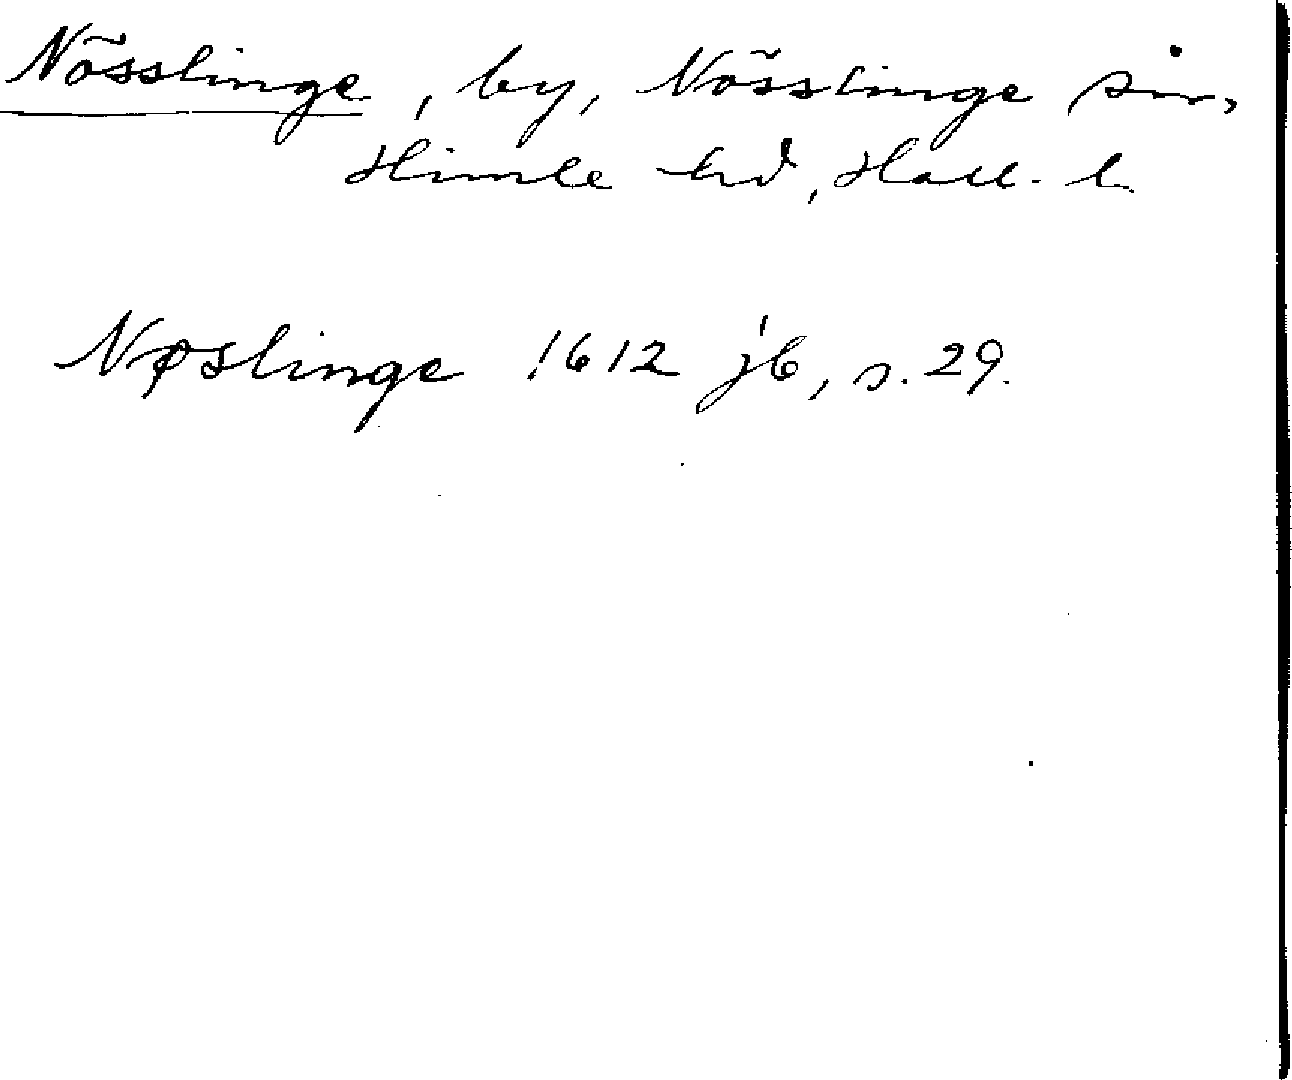 Nösslinge, by, Nösslinge sn,
Himle hd, Hall. l.
Nøslinge 1612 jb, s. 29.